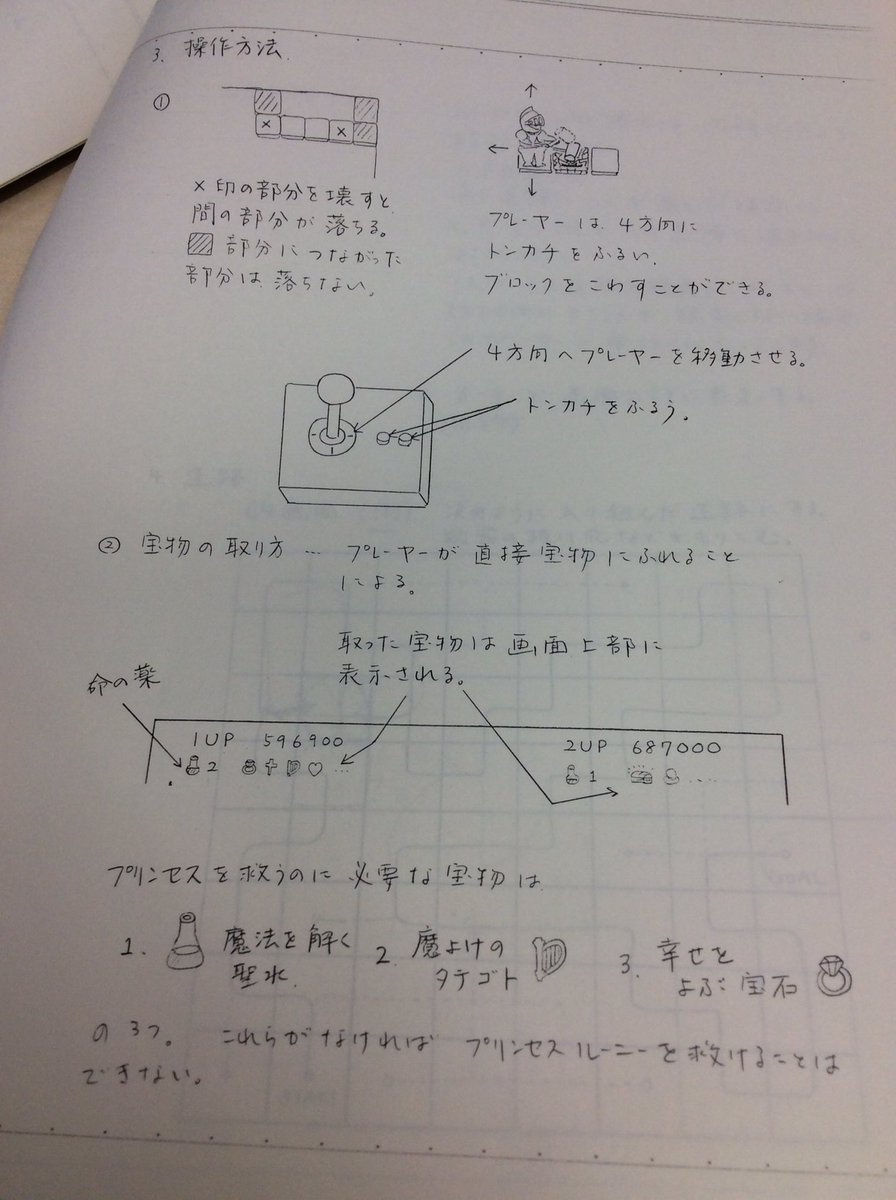 3. 操作方法.
①
×印の部分を壊すと
間の部分が落ちる。
部分につながった
部分は落ちない。
プレーヤーは、4方向に
トンカチをふるい、
ブロックをこわすことができる。
4方向へプレーヤーを移動させる。
トンカチをふるう。
② 宝物の取り方 … プレーヤーが直接宝物にふれること
による。
取った宝物は画面上部に
表示される。
命の薬
1UP 596900
2 …
2UP 687000
1 ....
プリンセスを救うのに必要な宝物は
1. 魔法を解く
聖水.
2. 魔よけの
タテゴト
3. 幸せを
よぶ宝石
の3つ。 これらがなければ プリンセスルーニーを救けることは
できない。